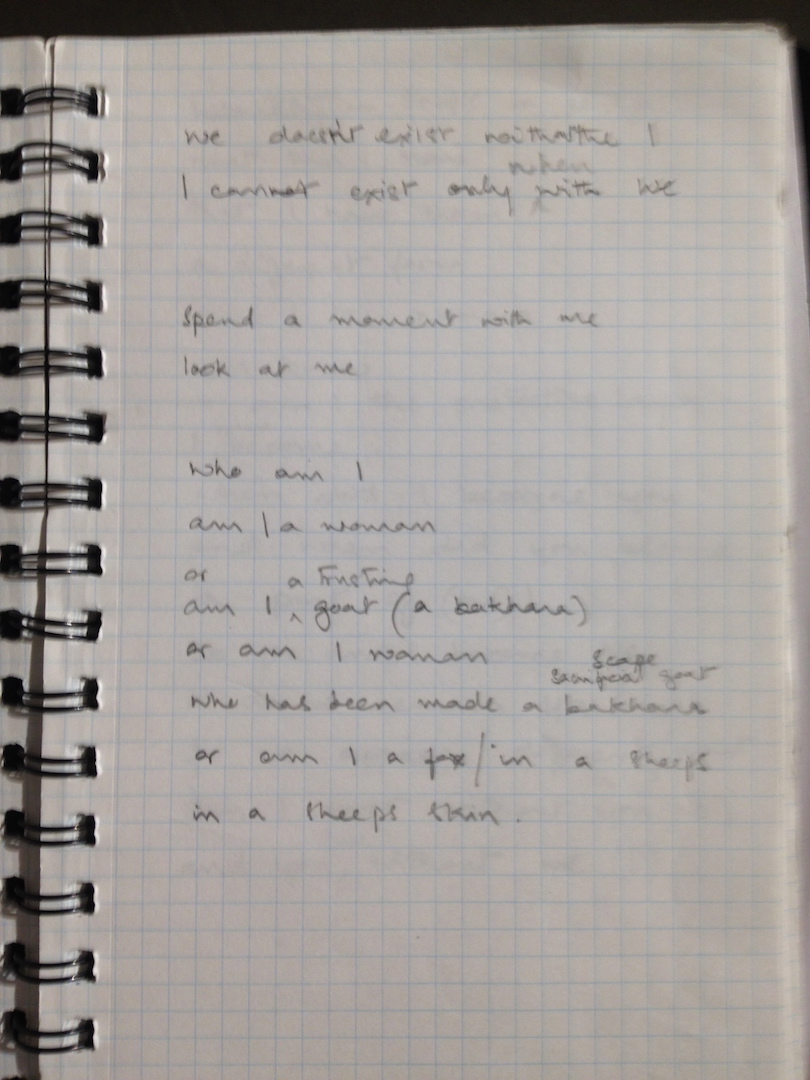 we doesn't exist I
when
I cannot exist only with we
spend a moment with me
look at me
who am I
am I a woman
or a trusting
am I ^ goat (a bakhara)
or am I woman
scape
sacrificial goat
who has been made a bakhara
or am I a fox/in a sheeps
in a sheeps skin.